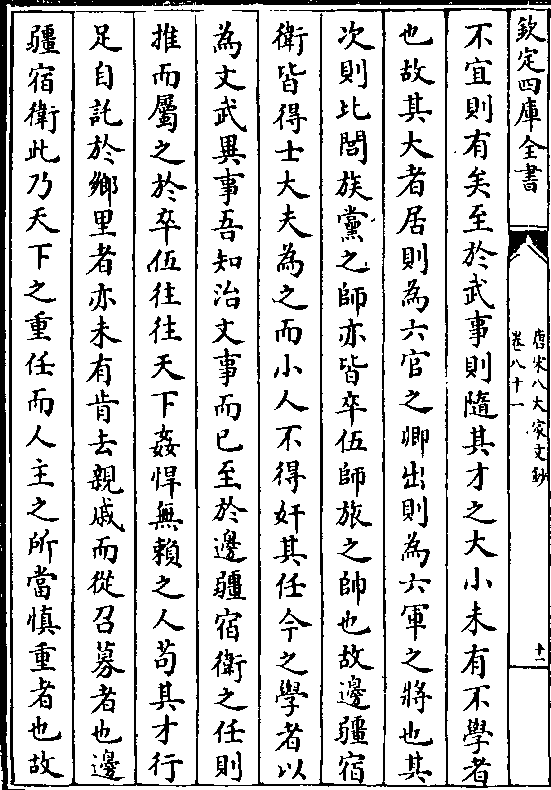 欽定四庫全書
唐宋八大家文鈔
卷八十一
十二
不宜則有矣至於武事則隨其才之大小未有不學者
也故其大者居則為六官之卿出則為六軍之將也其
次則比閭族黨之師亦皆卒伍師旅之帥也故邊疆宿
衛皆得士大夫為之而小人不得奸其任今之學者以
為文武異事吾知治文事而已至於邊疆宿衛之任則
推而屬之於卒伍往往天下姦悍無賴之人苟其才行
足自託於鄉里者亦未有肯去親戚而從召募者也邊
疆宿衛此乃天下之重任而人主之所當慎重者也故